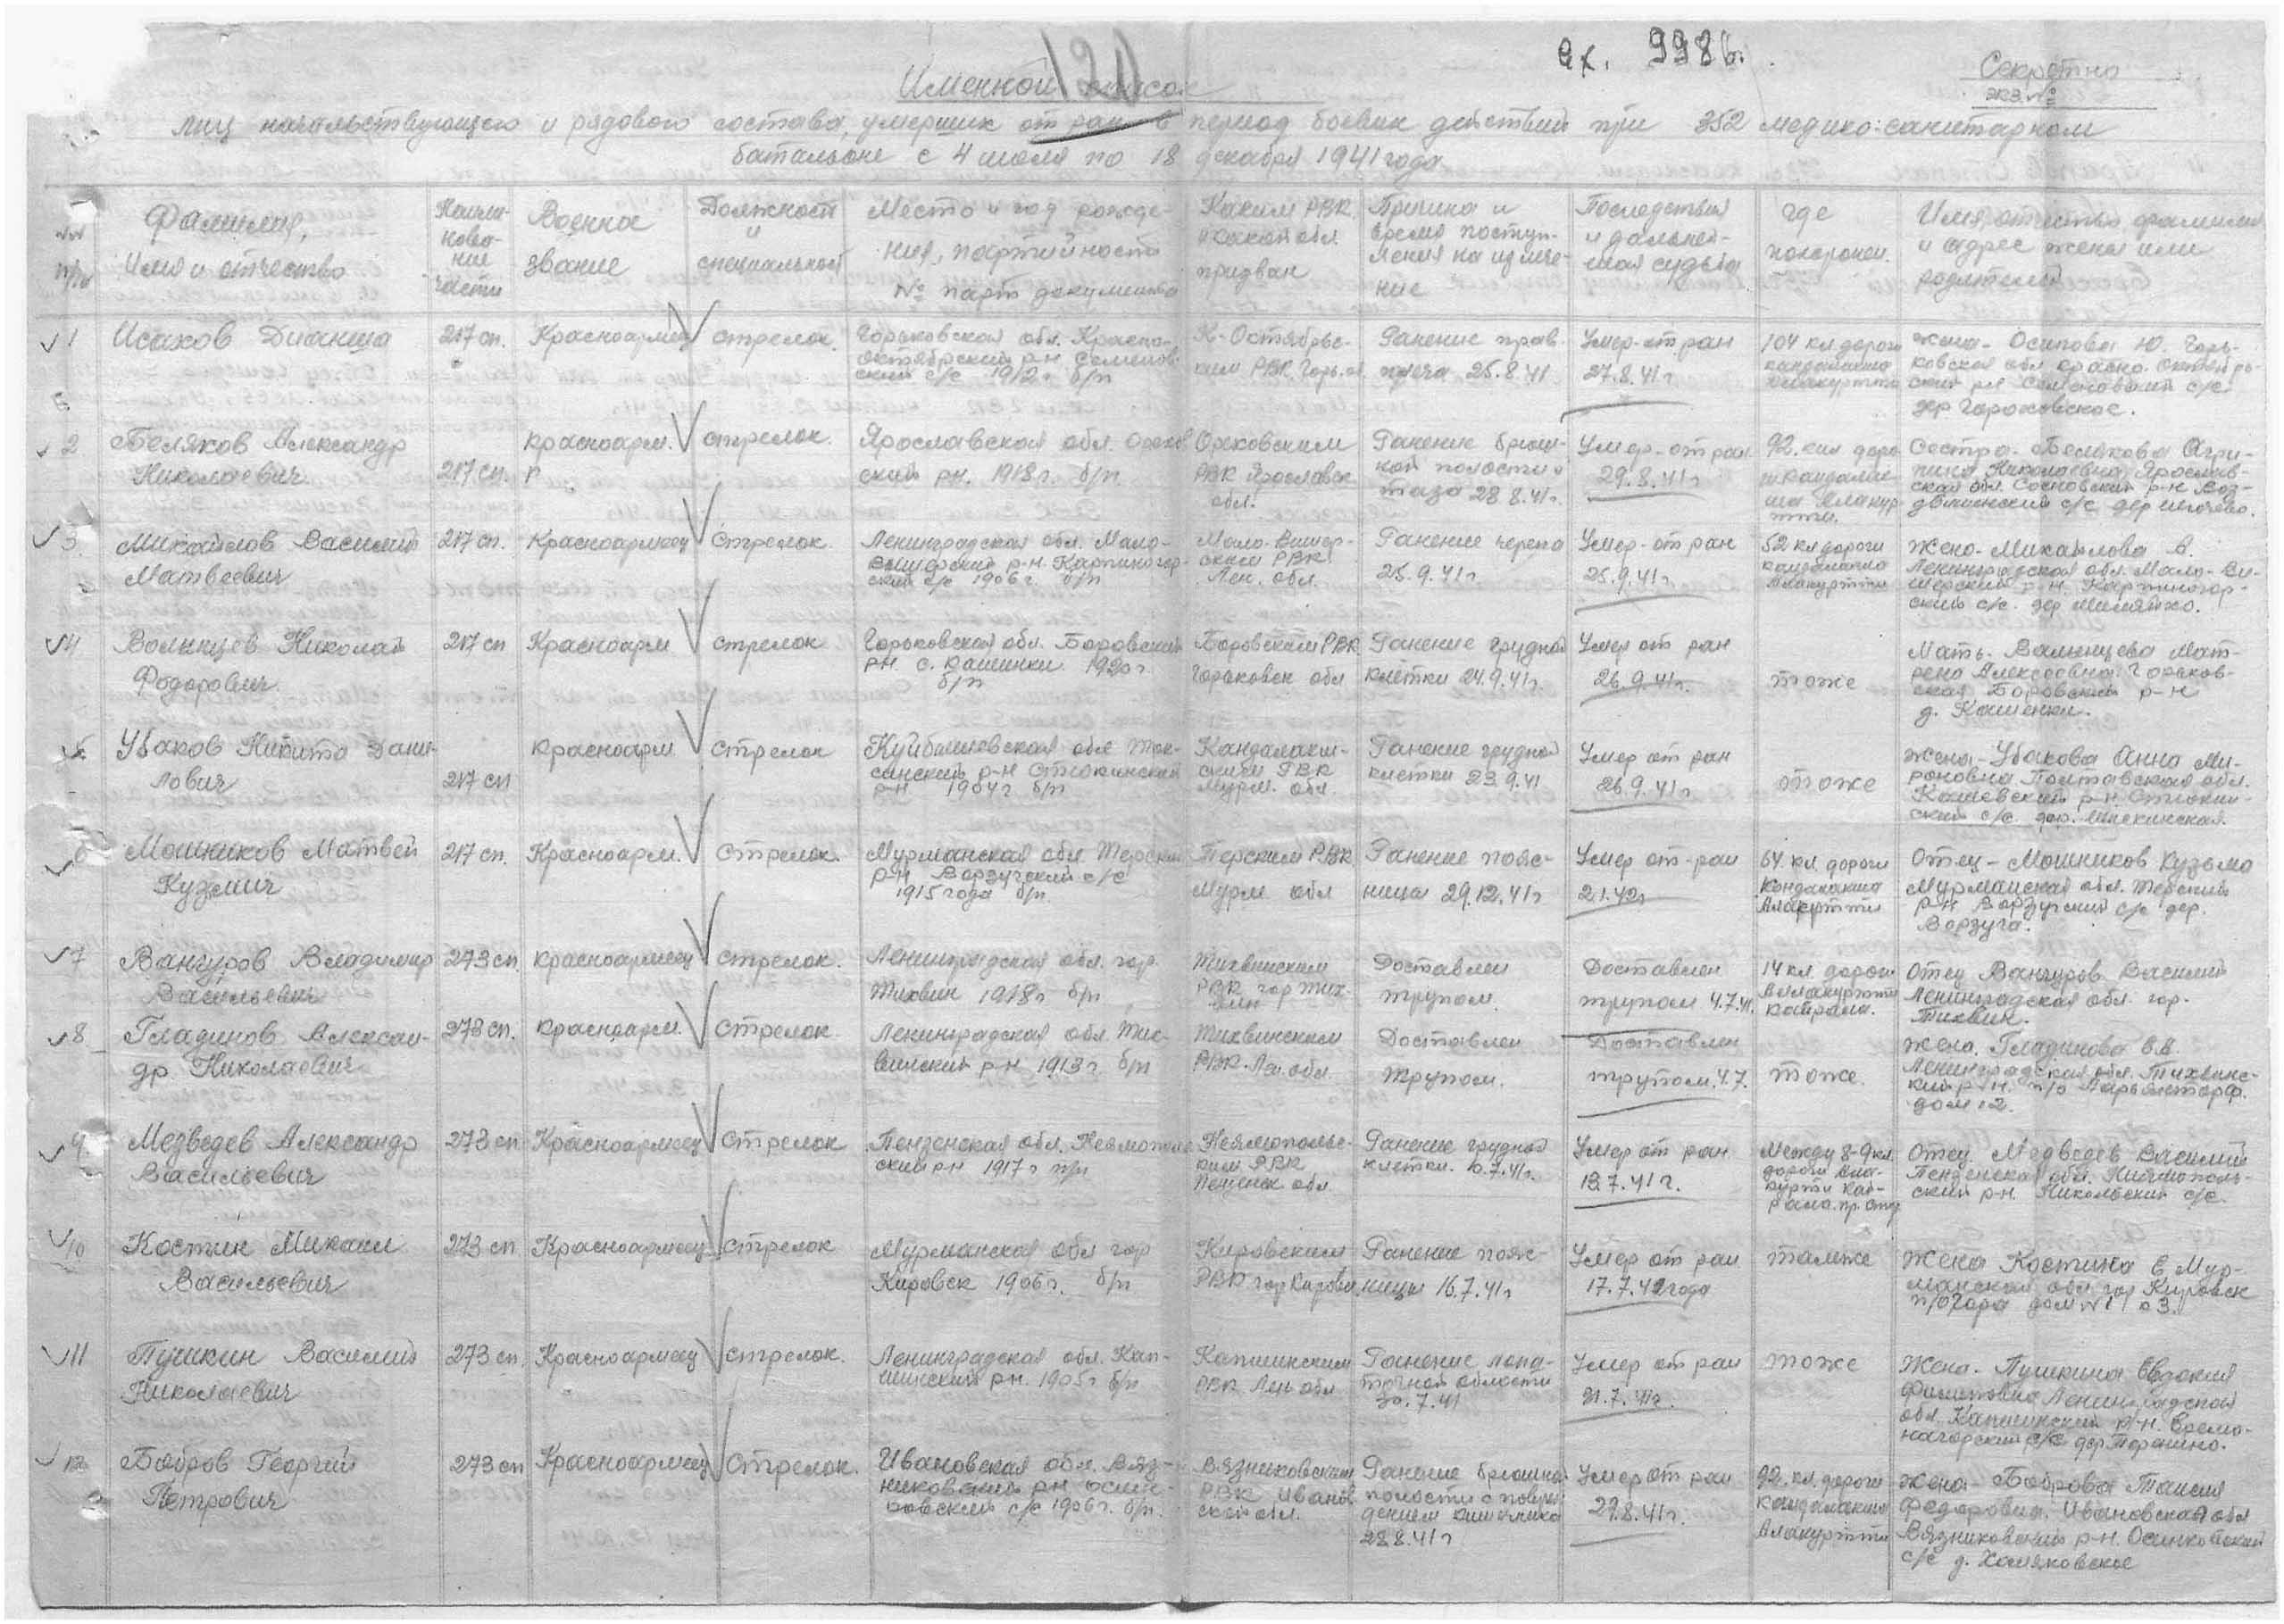 вх. 998в.
121
Секретно
экз. №
Именной список
лиц начальствующего и рядового состава, умерших от ран в период боевых действий при 352 медико-санитарном
батальоне с 4 июля по 18 декабря 1941 года
№№ п/п
Фамилия,
Имя и отчество
Наиме-
нова-
ние
части
Военное
звание
Должность
и
специальность
Место и год рожде-
ния, партийность
№ парт документа
Каким РВК
и какой обл
призван
Причина и
время поступ-
ления на излече-
ние
Последствия
и дальней-
шая судьба
Где
похоронен.
Имя, отчество фамилия
и адрес жены или
родителей
1
Исаков
217 сп.
Красноармеец
стрелок.
Горьковская обл. Красно-
октябрьский р-н Семенов-
ский с/с 1912 г б/п
К-Октябрьс-
ким РВК Горь.
Ранение прав.
плеча 25.8.41
Умер от ран
27.8.41 г
104 км дороги
Кандалакша
Алакуртти
Жена - Осипова Ю. Горь-
ковская обл Красно-Октябрь-
ский р-н Семеновский с/с
дер Гороховское.
2
Беляков Александр
Николаевич
217 сп.
Красноарм.
стрелок.
Ярославская обл.
ский р-н. 1918 г. б/п
Ореховским
РВК Ярославск
обл.
Ранение брюш-
ной полости и
таза 28.8.41 г.
Умер от ран
29.8.41 г
92 км доро
ги Кандалак-
ша Алакур-
тти.
Сестра - Белякова Агри-
пина Николаевна Ярослав-
ская обл. Сосновский р-н Воз-
движенский с/с дер
3
Михайлов Василий
Матвеевич
217 сп.
Красноармеец
Стрелок
Ленинградская обл. Мало-
Вишерский р-н. Карпиногор-
ский с/с 1906 г. б/п
Мало-Вишер-
ским РВК
Лен. обл.
Ранение черепа
25.9.41 г
Умер от ран
25.9.41 г.
52 км дороги
Кандалакша
Алакуртти
Жена - Михайлова А.
Ленинградская обл. Мало-Ви-
шерский р-н Карпиногор-
ский с/с. дер
4
Волынцев Николай
Федорович
217 сп
Красноарм
стрелок
Горьковская обл. Боровский
р-н. с. Кашинки 1920 г
б/п
Боровским РВК
Горьковск обл
Ранение грудной
клетки 24.9.41 г.
Умер от ран
26.9.41 г.
тоже
Мать - Валынцева Мат-
рена Алексеевна Горьков-
ская Боровский р-н
д. Кашенки.
5
Убаков Никита Дани-
лович
217 сп
Красноарм
Стрелок
Куйбышевская обл
р-н
р-н 1904 г б/п
Кандалакш-
ским РВК
Мурм. обл.
Ранение грудной
клетки 23.9.41
Умер от ран
26.9.41 г
тоже
Жена - Убакова Анна Ми-
роновна Полтавская обл.
р-н.
ский с/с дер.
6
Мошников Матвей
Кузмич
217 сп.
Красноарм.
Стрелок.
Мурманская обл. Терский
р-н Варзугский с/с
1915 года б/п
Терским РВК
Мурм обл
Ранение пояс-
ницы 29.12.41 г
Умер от ран
2.1.42 г
64 км дороги
Кандалакша
Алакуртти
Отец - Мошников Кузьма
Мурманская обл. Терский
р-н Варзугский с/с дер.
Варзуга.
7
Вангуров Владимир
Васильевич
273 сп.
Красноармеец
стрелок.
Ленинградская обл. гор.
Тихвин 1918 г б/п
Тихвинским
РВК гор Тих-
вин
Доставлен
трупом.
Доставлен
трупом 4.7.41.
14 км дороги
Алакуртти
Кайрала.
Отец Вангуров Василий
Ленинградская обл. гор.
Тихвин.
8
Гладинов Алексан-
др Николаевич
273 сп.
Красноарм.
Стрелок
Ленинградская обл Тих-
винский р-н 1913 г б/п
Тихвинским
РВК Лен обл.
Доставлен
трупом.
Доставлен
трупом. 4.7.
тоже
Жена. Гладинова В.В.
Ленинградская обл. Тихвинс-
кий р-н. п/о
дом 12.
9
Медведев Александр
Васильевич
273 сп
Красноармеец
Стрелок
Пензенская обл.
ский р-н 1917 г б/п
РВК
Пензенск обл
Ранение грудной
клетки. 10.7.41 г.
Умер от ран
13.7.41 г.
Между 8-9 км.
дороги Ала-
куртти Кай-
рала. пр. стор
Отец Медведев Василий
Пензенская обл.
ский р-н. Никольский с/с
10
Костин Михаил
Васильевич
273 сп
Красноармеец
стрелок
Мурманская обл гор
Кировск 1906 г. б/п
Кировским
РВК гор Кировск
Ранение пояс-
ницы 16.7.41 г
Умер от ран
17.7.42 года
тамже
Жена Костина Е Мур-
манская обл. гор Кировск
дом №
11
Пушкин Василий
Николаевич
273 сп.
Красноармеец
стрелок.
Ленинградская обл. Кап-
шинский р-н. 1905 г б/п
Капшинским
РВК Лен обл
Ранение лопа-
точной области
30.7.41
Умер от ран
31.7.41 г.
тоже
Жена - Пушкина Евдокия
Филиповна Ленинградской
обл. Капшинский р-н.
с/с дер
12
Бобров Георгий
Петрович
273 сп
Красноармеец
Стрелок.
Ивановская обл. Вяз-
никовский р-н Осин-
ковский с/с 1906 г. б/п.
Вязниковским
РВК Иванов
ской обл.
Ранение брюшной
полости с повреж-
дением кишечника
28.8.41 г
Умер от ран
29.8.41 г.
92 км дороги
Кандалакша
Алакуртти
Жена - Боброва Таисия
Федоровна. Ивановская обл
Вязниковский р-н. Осинковский
с/с д. Холяковское